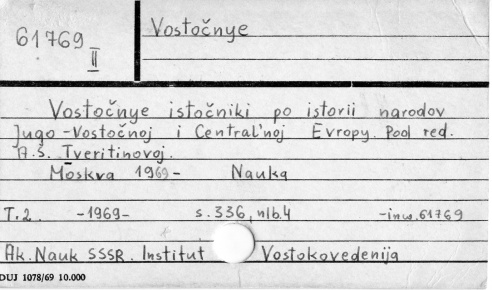 61769
II
Vostočnye
Vostočnye istočniki po istorii narodov
Jugo-Vostočnoj i Central'noj Evropy. Pod red.
A.S. Tveritinovoj.
Moskva 1969- Nauka
T.2. -1969- s.336, nlb.4 -inw.61769
Ak. Nauk SSSR. Institut Vostokovedenija
DUJ 1078/69 10.000